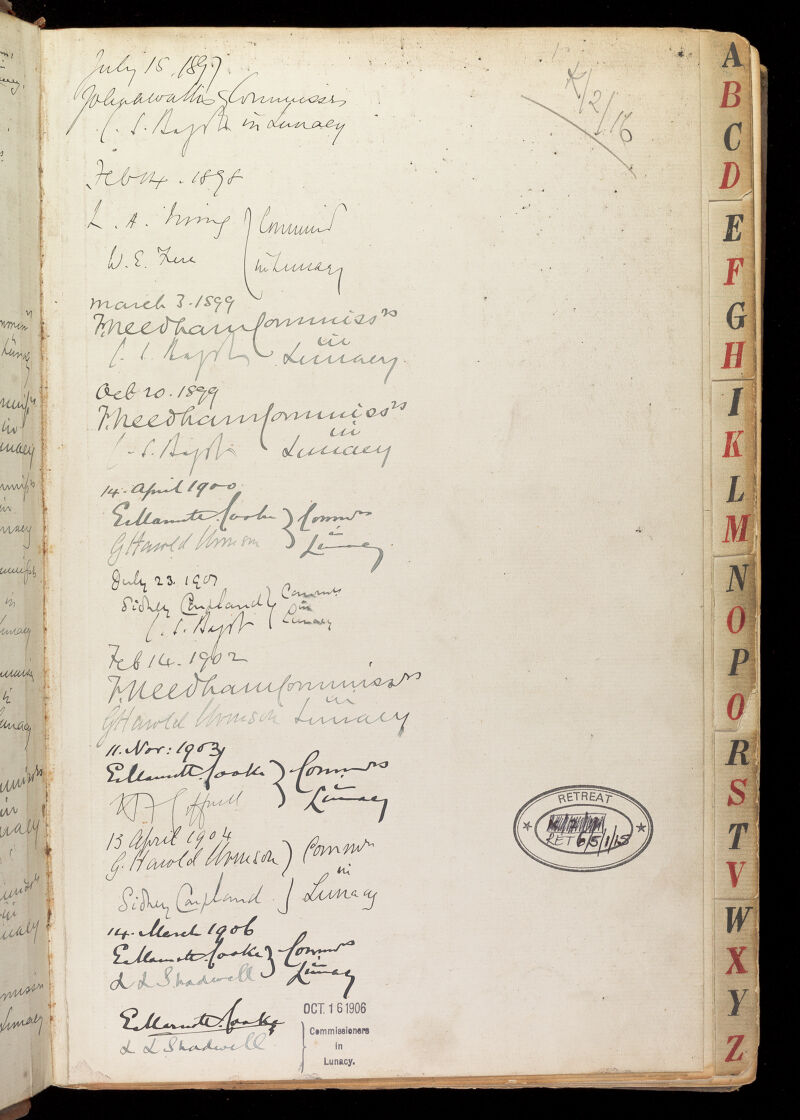 July 15, 1897
Commissrs
C. S. Bagot in Lunacy
K/2/16
Feb 14. 1898
L. A.
W. E. Frere
in Lunacy
March 3. 1899
F. Needham Commissrs
in
C. S. Bagot Lunacy.
Oct 20. 1899
F. Needham Commissrs
in
C. S. Bagot Lunacy
14. April 1900
E. Marriott Cooke } Commrs
in
G Harold Urmson Lunacy
July 23. 1901
Sidney Coupland } Commrs
in
C. S. Bagot Lunacy
Feb 14. 1902
F. Needham Commissrs
in
G Harold Urmson Lunacy
11. Nov: 1903
E. Marriott Cooke } Commrs
in
Lunacy
13 April 1904
G. Harold Urmson } Commrs
in
Sidney Coupland } Lunacy
14. March 1906
E. Marriott Cooke } Commrs
in
L L Shadwell Lunacy
OCT. 16 1906
E. Marriott Cooke
Commissioners
in
L L Shadwell
Lunacy.
RETREAT
RET 6/5/1/18
A
B
C
D
E
F
G
H
I
K
L
M
N
O
P
Q
R
S
T
V
W
X
Y
Z